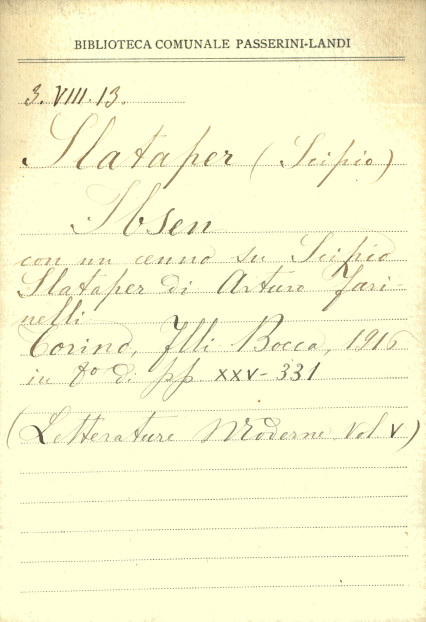 BIBLIOTECA COMUNALE PASSERINI-LANDI
3. VIII. 13.
Slataper (Scipio)
Ibsen
con un cenno su Scipio
Slataper di Arturo Fari-
nelli
Torino, Flli Bocca, 1916
in 8o di pp XXV-331
(Letterature Moderne Vol V)